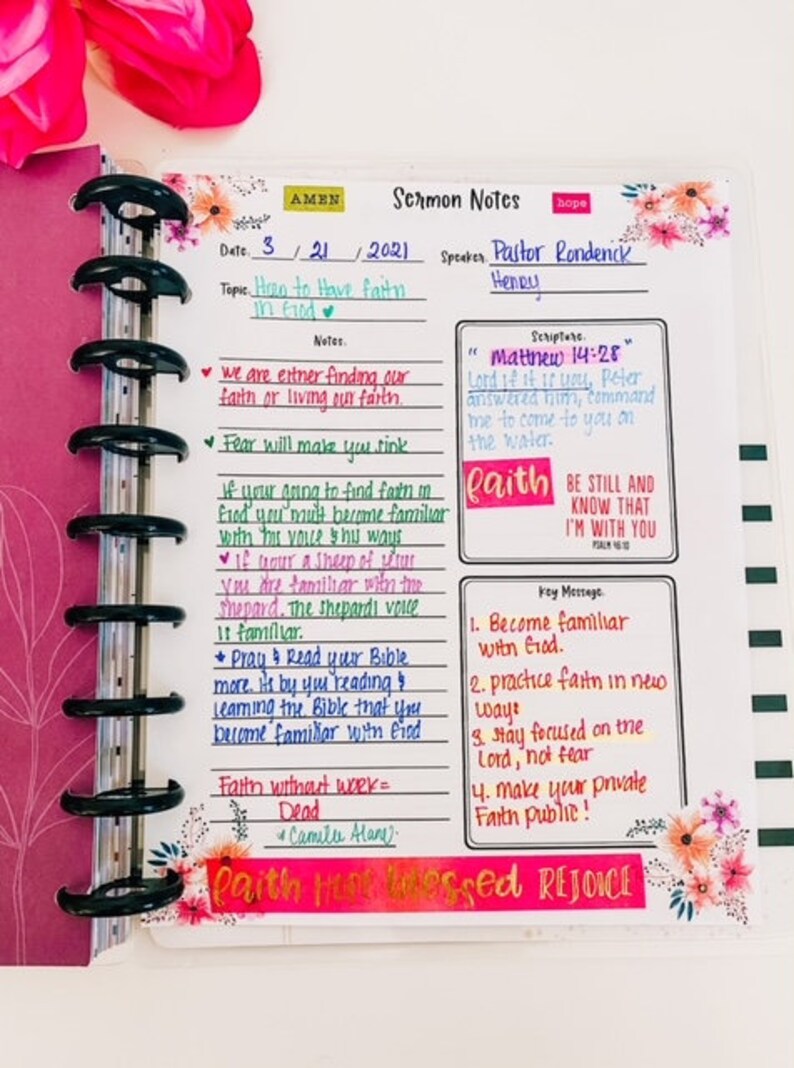 AMEN Sermon Notes hope
Date. 3 / 21 / 2021
Speaker. Pastor Ronderick
Henry
Topic. How to Have faith
in God
Notes.
we are either finding our
faith or living our faith.
Fear will make you sink
If your going to find faith in
God you must become familiar
with his voice & his ways
If your a sheep of Jesus
you are familiar with the
shepard. The shepards voice
is familiar.
Pray & Read your Bible
more. Its by you reading &
learning the Bible that you
become familiar with God
Faith without work =
Dead
Scripture.
" Matthew 14:28 "
Lord if it is you, Peter
answered him, command
me to come to you on
the water.
faith
BE STILL AND
KNOW THAT
I'M WITH YOU
PSALM 46:10
Key Message.
1. Become familiar
with God.
2. practice faith in new
ways
3. stay focused on the
Lord, not fear
4. make your private
Faith public!
faith Hope blessed REJOICE